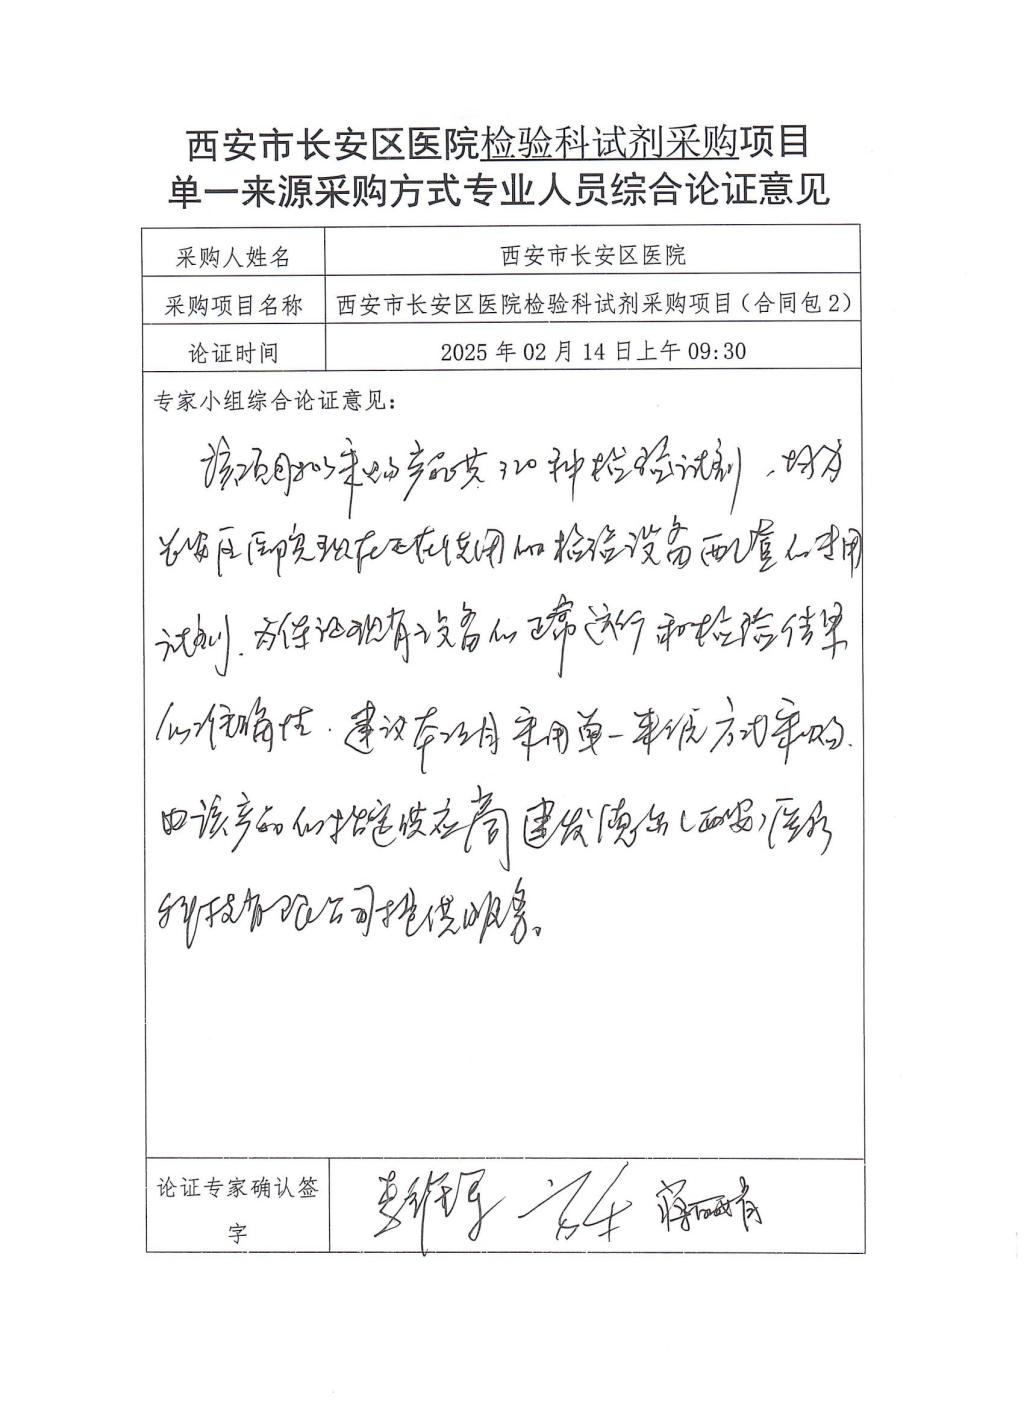 西安市长安区医院检验科试剂采购项目
单一来源采购方式专业人员综合论证意见
采购人姓名
西安市长安区医院
采购项目名称
西安市长安区医院检验科试剂采购项目（合同包2）
论证时间
2025年02月14日上午09:30
专家小组综合论证意见：
该项目拟采购产品共320种检验试剂，均为
长安区医院现在正在使用的检验设备配套的专用
试剂.为保证现有设备的正常运行和检验结果
的准确性.建议本项目采用单一来源方式采购.
由该产品的指定供应商建发德尔(西安)医疗
科技有限公司提供服务。
论证专家确认签
字